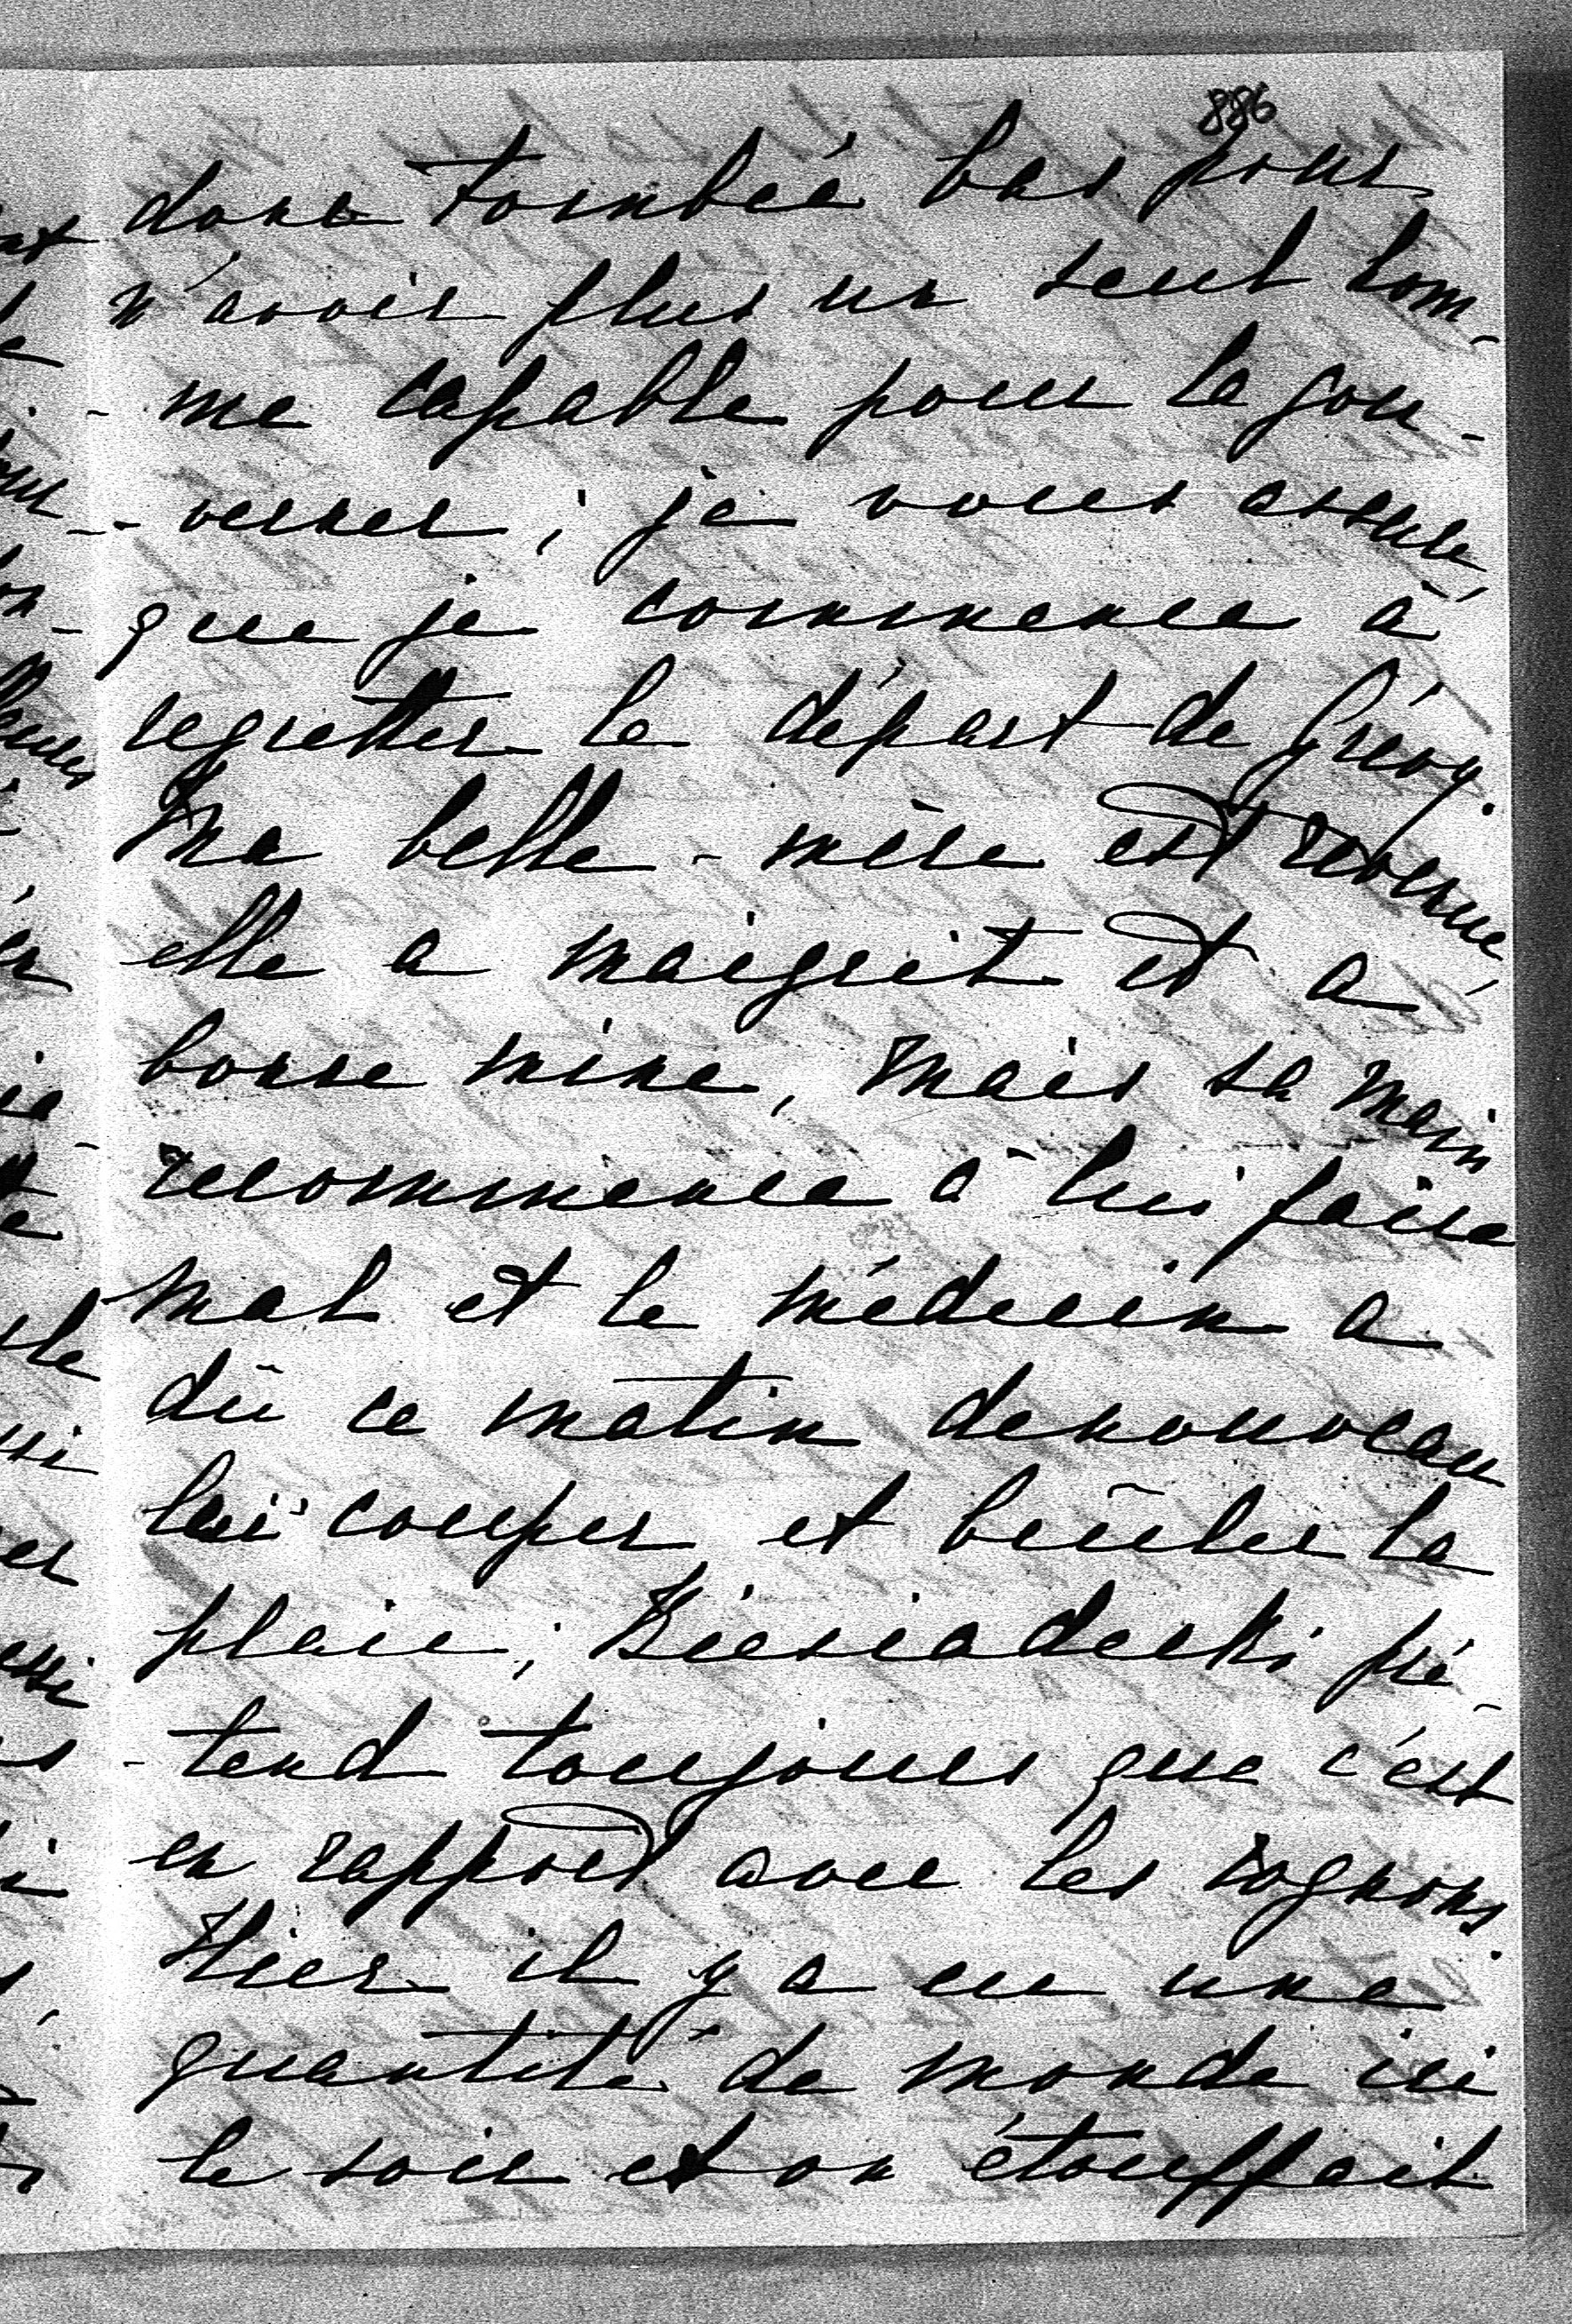 886
donc tombée bas pour
n'avoir plus un seul hom-
-me capable pour la gou-
-verner; je vous assure,
que je commence à
regretter le départ de Grévy.
Ma belle-mère est revenue,
elle a maigrit et a
bonne mine, mais sa main
recommence à lui faire
mal et le médecin a
dû ce matin denouveau
lui couper et brûler la
plaie; Biesiadecki pré-
-tend toujours que c'est
en rapport avec les rognons.
Hier il y a eu une
quantité de monde ici
le soir et on étouffait